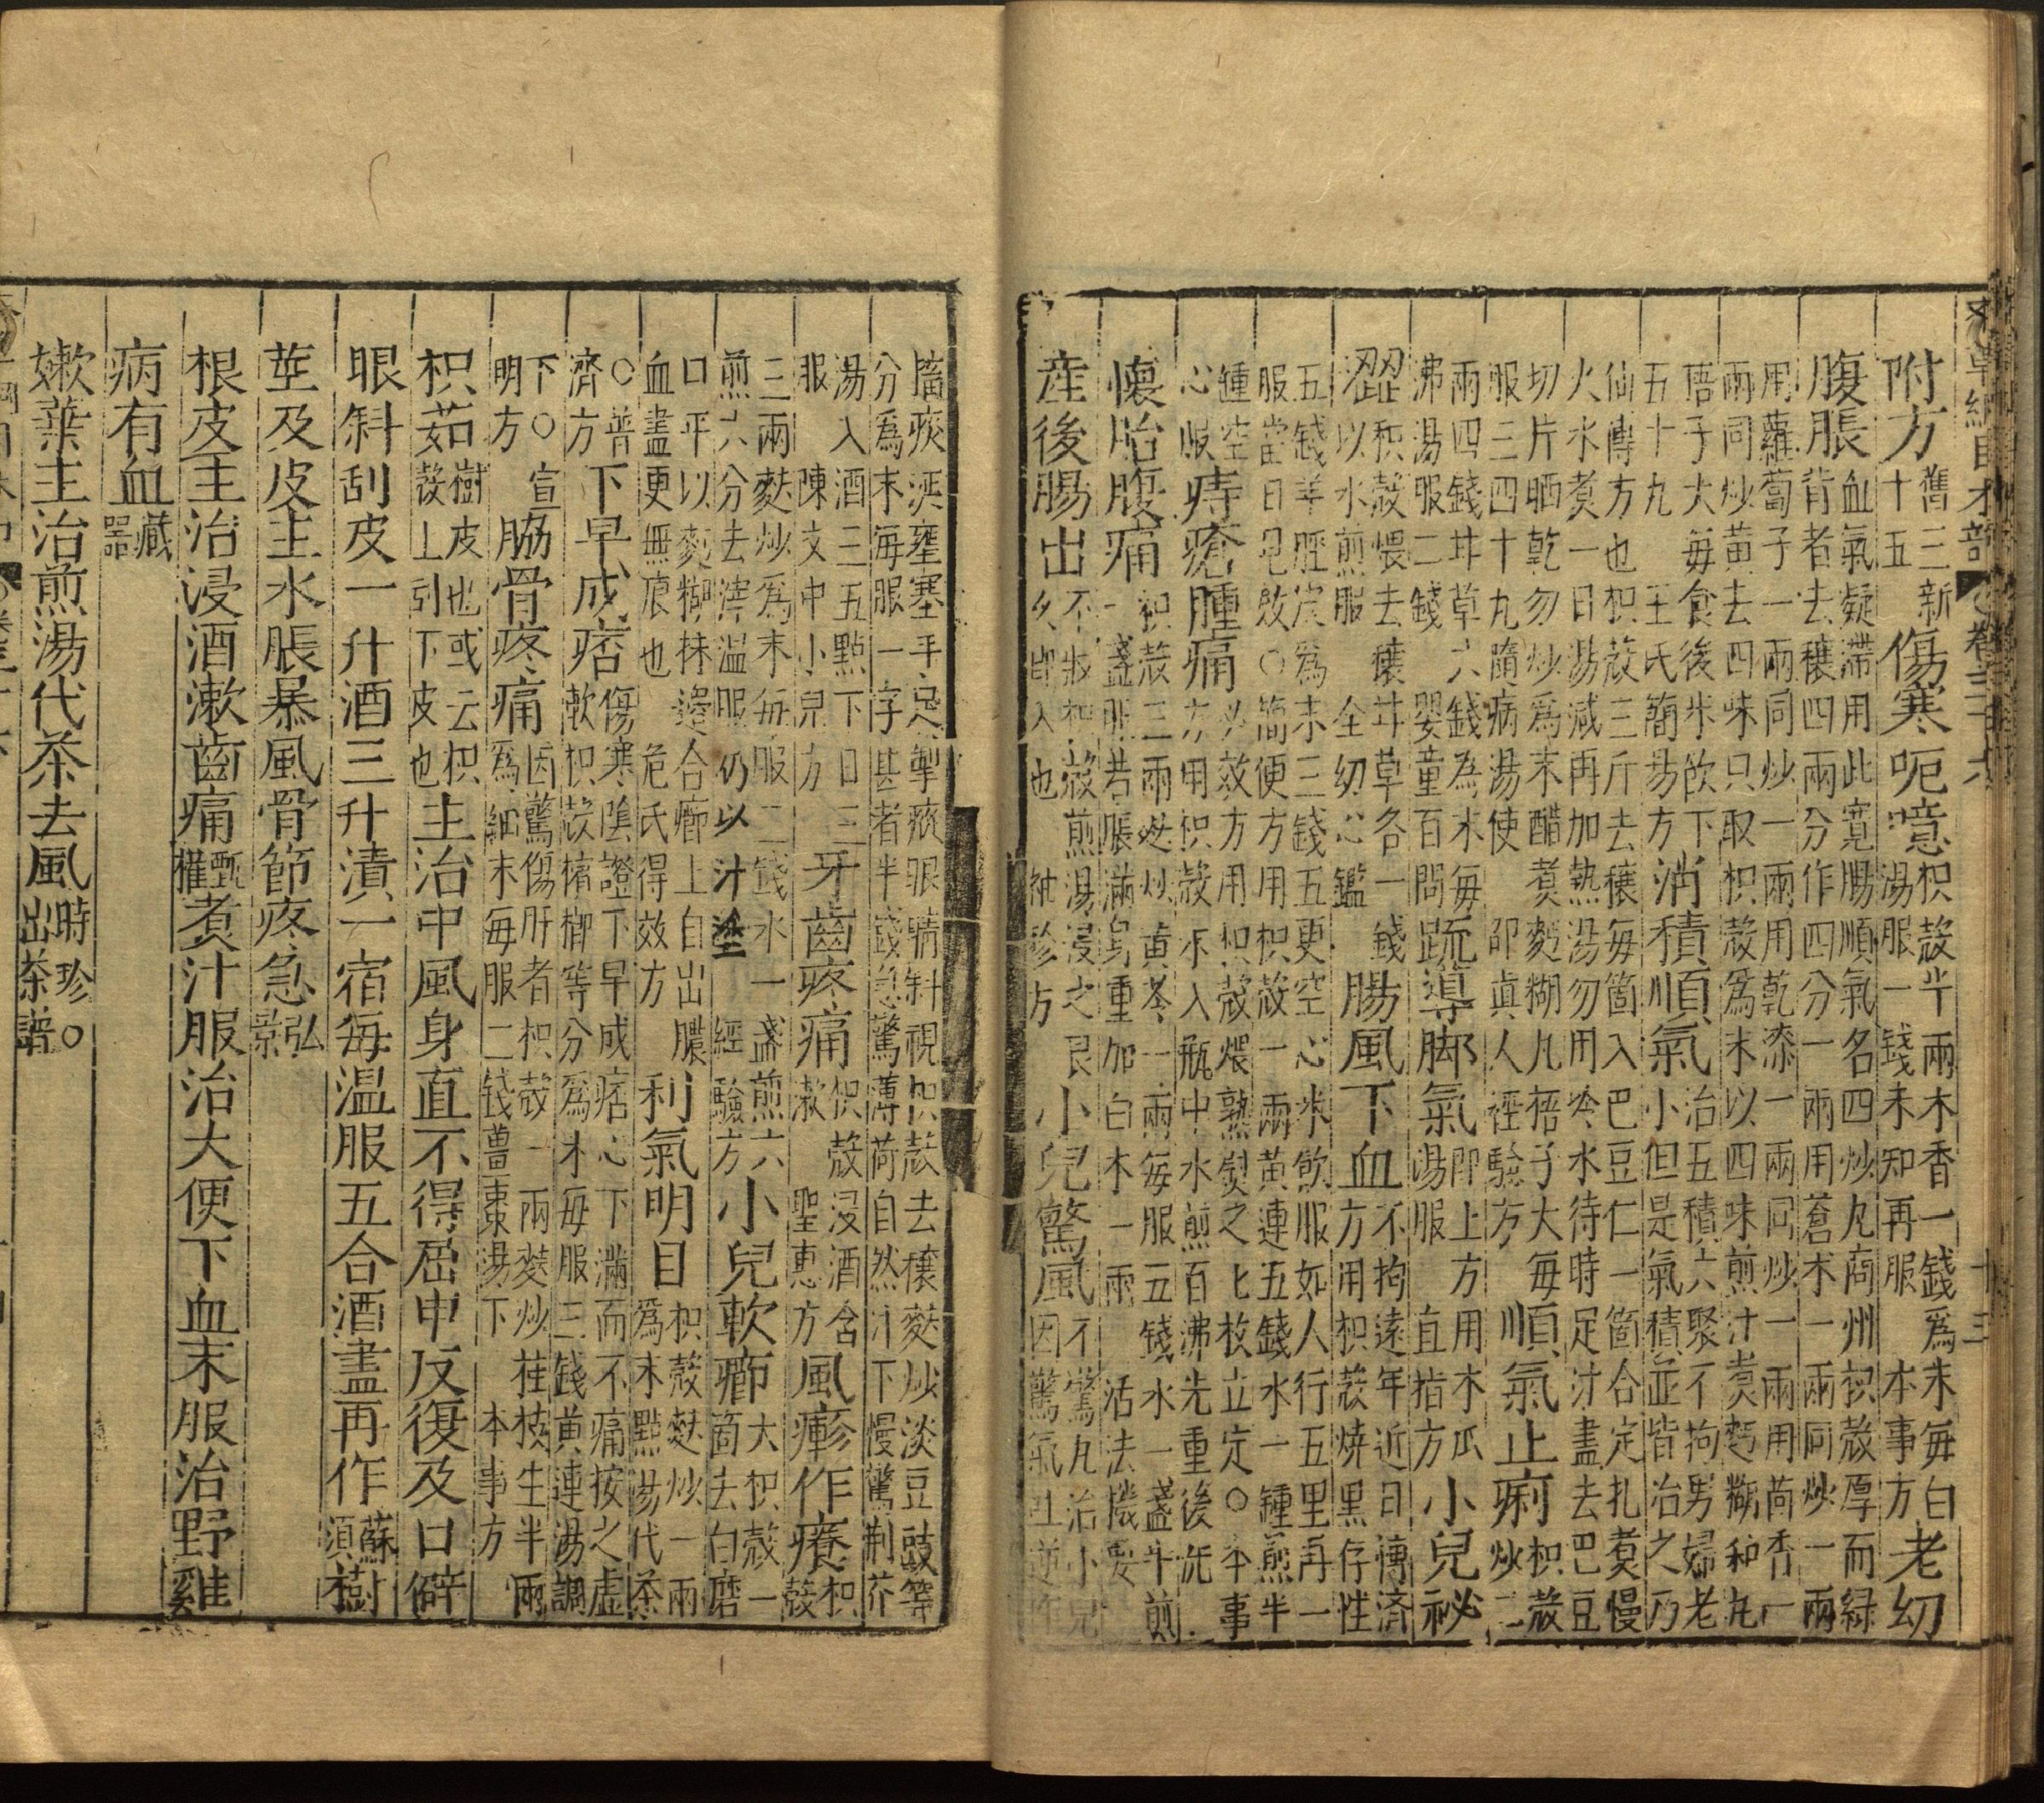 本草綱目木部 卷三十六 十三
附方 舊三新十五 傷寒呃噫 枳殼半兩木香一錢爲末每白湯服一錢未知再服 本事方 老幼
腹脹 血氣凝滯用此寛腸順氣名四炒丸商州枳殼厚而緑背者去穰四兩分作四分一兩用蒼术一兩同炒一兩
用蘿蔔子一兩同炒一兩用乾漆一兩同炒一兩用茴香一兩同炒黃去四味只取枳殼爲末以四味煎汁煮麪糊和丸
梧子大每食後米飲下五十九 王氏簡易方 消積順氣 治五積六聚不拘男婦老小但是氣積並皆治之乃
仙傳方也枳殼三斤去穰每箇入巴豆仁一箇合定扎煮慢火水煮一日湯減再加熱湯勿用冷水待時足汁盡去巴豆
切片晒乾勿炒爲末醋煮麪糊丸梧子大每服三四十九隨病湯使 邵真人經驗方 順氣止痢 枳殼炒二
兩四錢甘草六錢為末每沸湯服二錢 嬰童百問 疏導脚氣 即上方用木瓜湯服 直指方 小兒祕
澀 枳殼煨去穰甘草各一錢以水煎服 全幼心鑑 腸風下血 不拘遠年近日慱濟方用枳殼燒黑存性
五錢羊脛炭為末三錢五更空心米飲服如人行五里再一服當日見效○簡便方用枳殼一兩黃連五錢水一鍾煎半
鍾空心服 痔瘡腫痛 必效方用枳殼煨熟熨之七枚立定○本事方用枳殼末入瓶中水煎百沸先熏後洗
懷胎腹痛 枳殼三兩麩炒黃芩一兩每服五錢水一盞半煎一盞服若脹滿身重加白朮一兩 活法機要
産後腸出 不收枳殼煎湯浸之良久即入也 袖珍方 小兒驚風 不驚丸治小兒因驚氣吐逆作
搐痰涎壅塞手足掣瘲眼睛斜視枳殼去穰麩炒淡豆豉等分爲末每服一字甚者半錢急驚薄荷自然汁下慢驚荆芥
湯入酒三五點下日三服 陳文中小兒方 牙齒疼痛 枳殼浸酒含漱 聖惠方 風瘮作癢 枳殼
三兩麩炒爲末每服二錢水一盞煎六煎六分去滓温服仍以汁塗 經驗方 小兒軟癤 大枳殼一箇去白磨
口平以麪糊抹邊合癤上自出膿血盡更無痕也 危氏得效方 利氣明目 枳殼麩炒一兩爲末點湯代茶
○普濟方 下早成痞 傷寒陰證下早成痞心下滿而不痛按之虛軟枳殼檳榔等分爲末每服三錢黃連湯調
下○宣明方 脇骨疼痛 因驚傷肝者枳殼一兩麩炒桂枝生半兩爲細末每服二錢薑棗湯下 本事方
枳茹 樹皮也或云枳殼上刮下皮也 主治中風身直不得屈申反復及口僻
眼斜刮皮一升酒三升漬一宿每温服五合酒盡再作 蘇頌 樹
莖及皮主水脹暴風骨節疼急 弘景
根皮主治浸酒漱齒痛 甄權 煮汁服治大便下血末服治野雞
病有血 藏器
嫩葉主治煎湯代茶去風 時珍○出茶譜